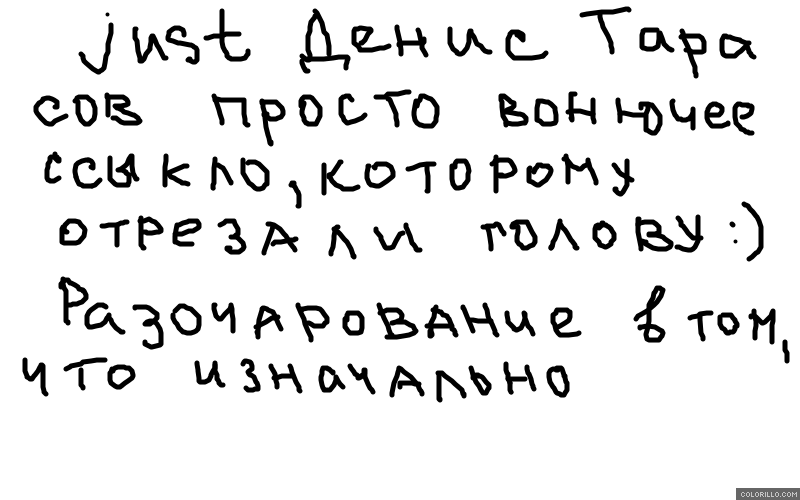 just Денис Тара
сов просто вонючее
ссыкло, которому
отрезали голову :)
Разочарование в том,
что изначально
COLORILLO.COM